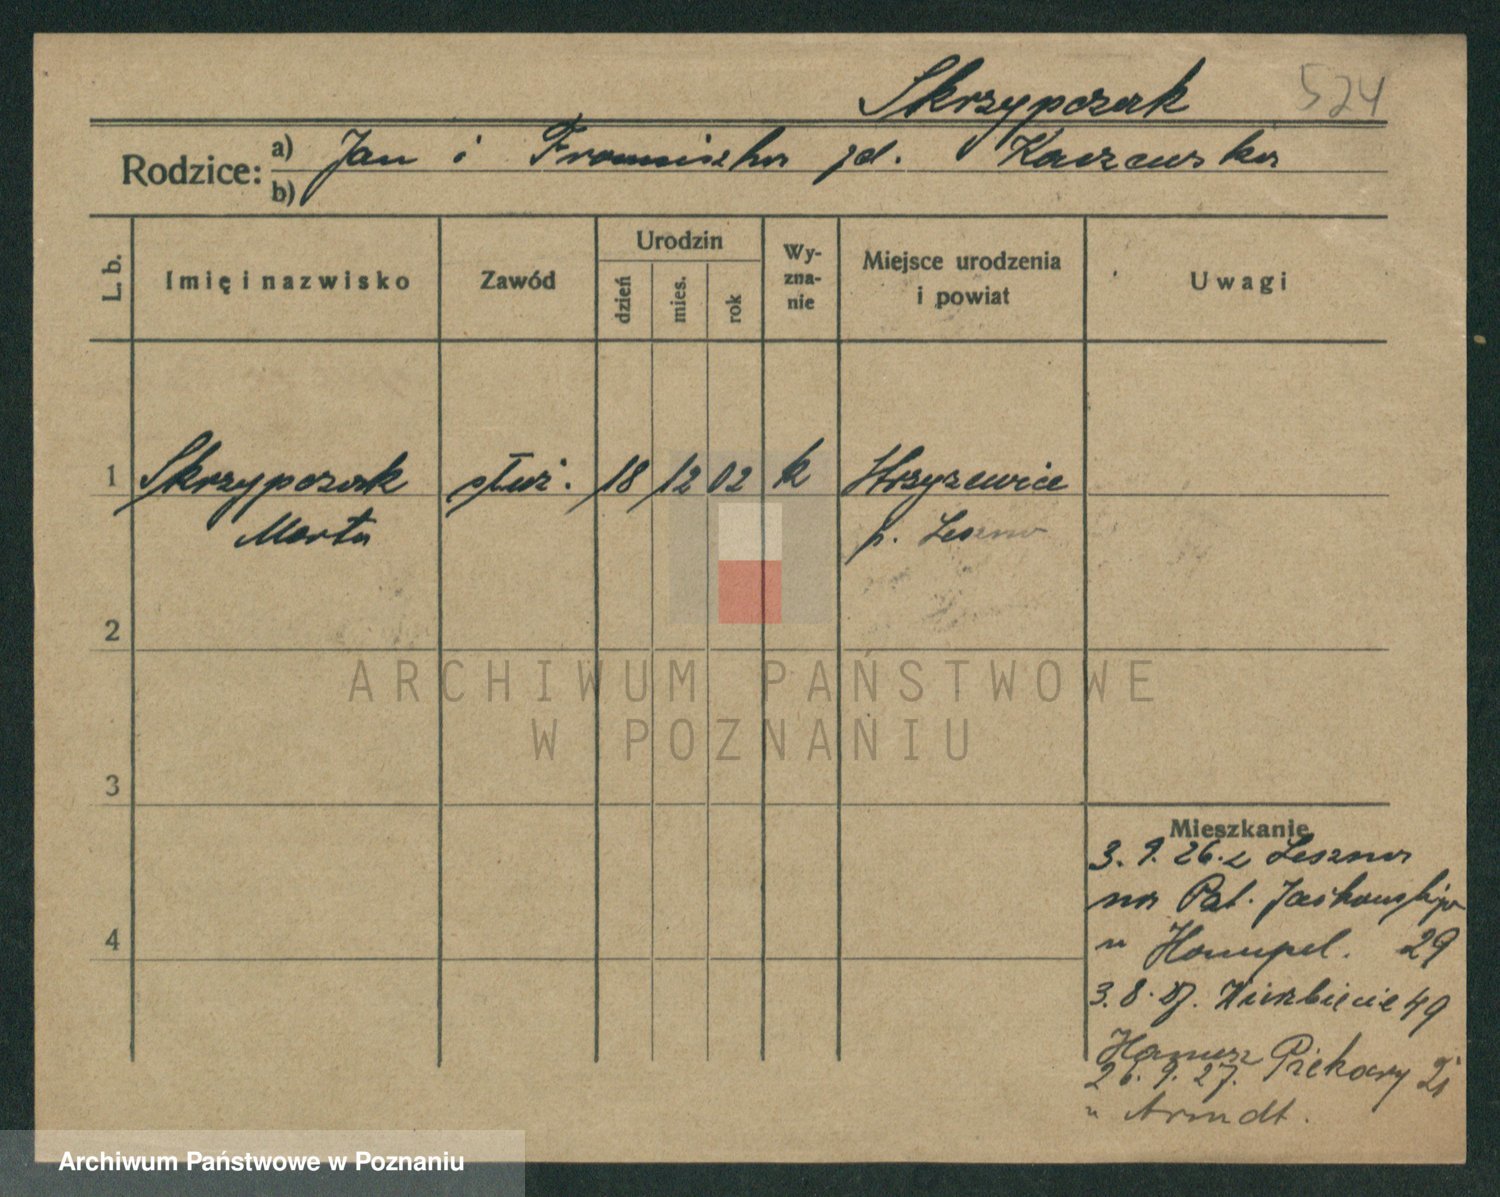 Skrzypczak 524
Rodzice: a) Jan i Franciszka zd. Kaczewska
b)
L. b. Imię i nazwisko Zawód Urodzin dzień mies. rok Wyznanie Miejsce urodzenia i powiat Uwagi
1 Skrzypczak służ. 18 12 02 k
Marta p. Leszno
2
ARCHIWUM PAŃSTWOWE
W POZNANIU
3
Mieszkanie
3. 9. 26. z Leszna
na Pat. Jackowskiego
u Hampel. 29
4
3. 8. 27. Wierzbięcie 49
26. 9. 27. Piekary
u Arndt.
Archiwum Państwowe w Poznaniu